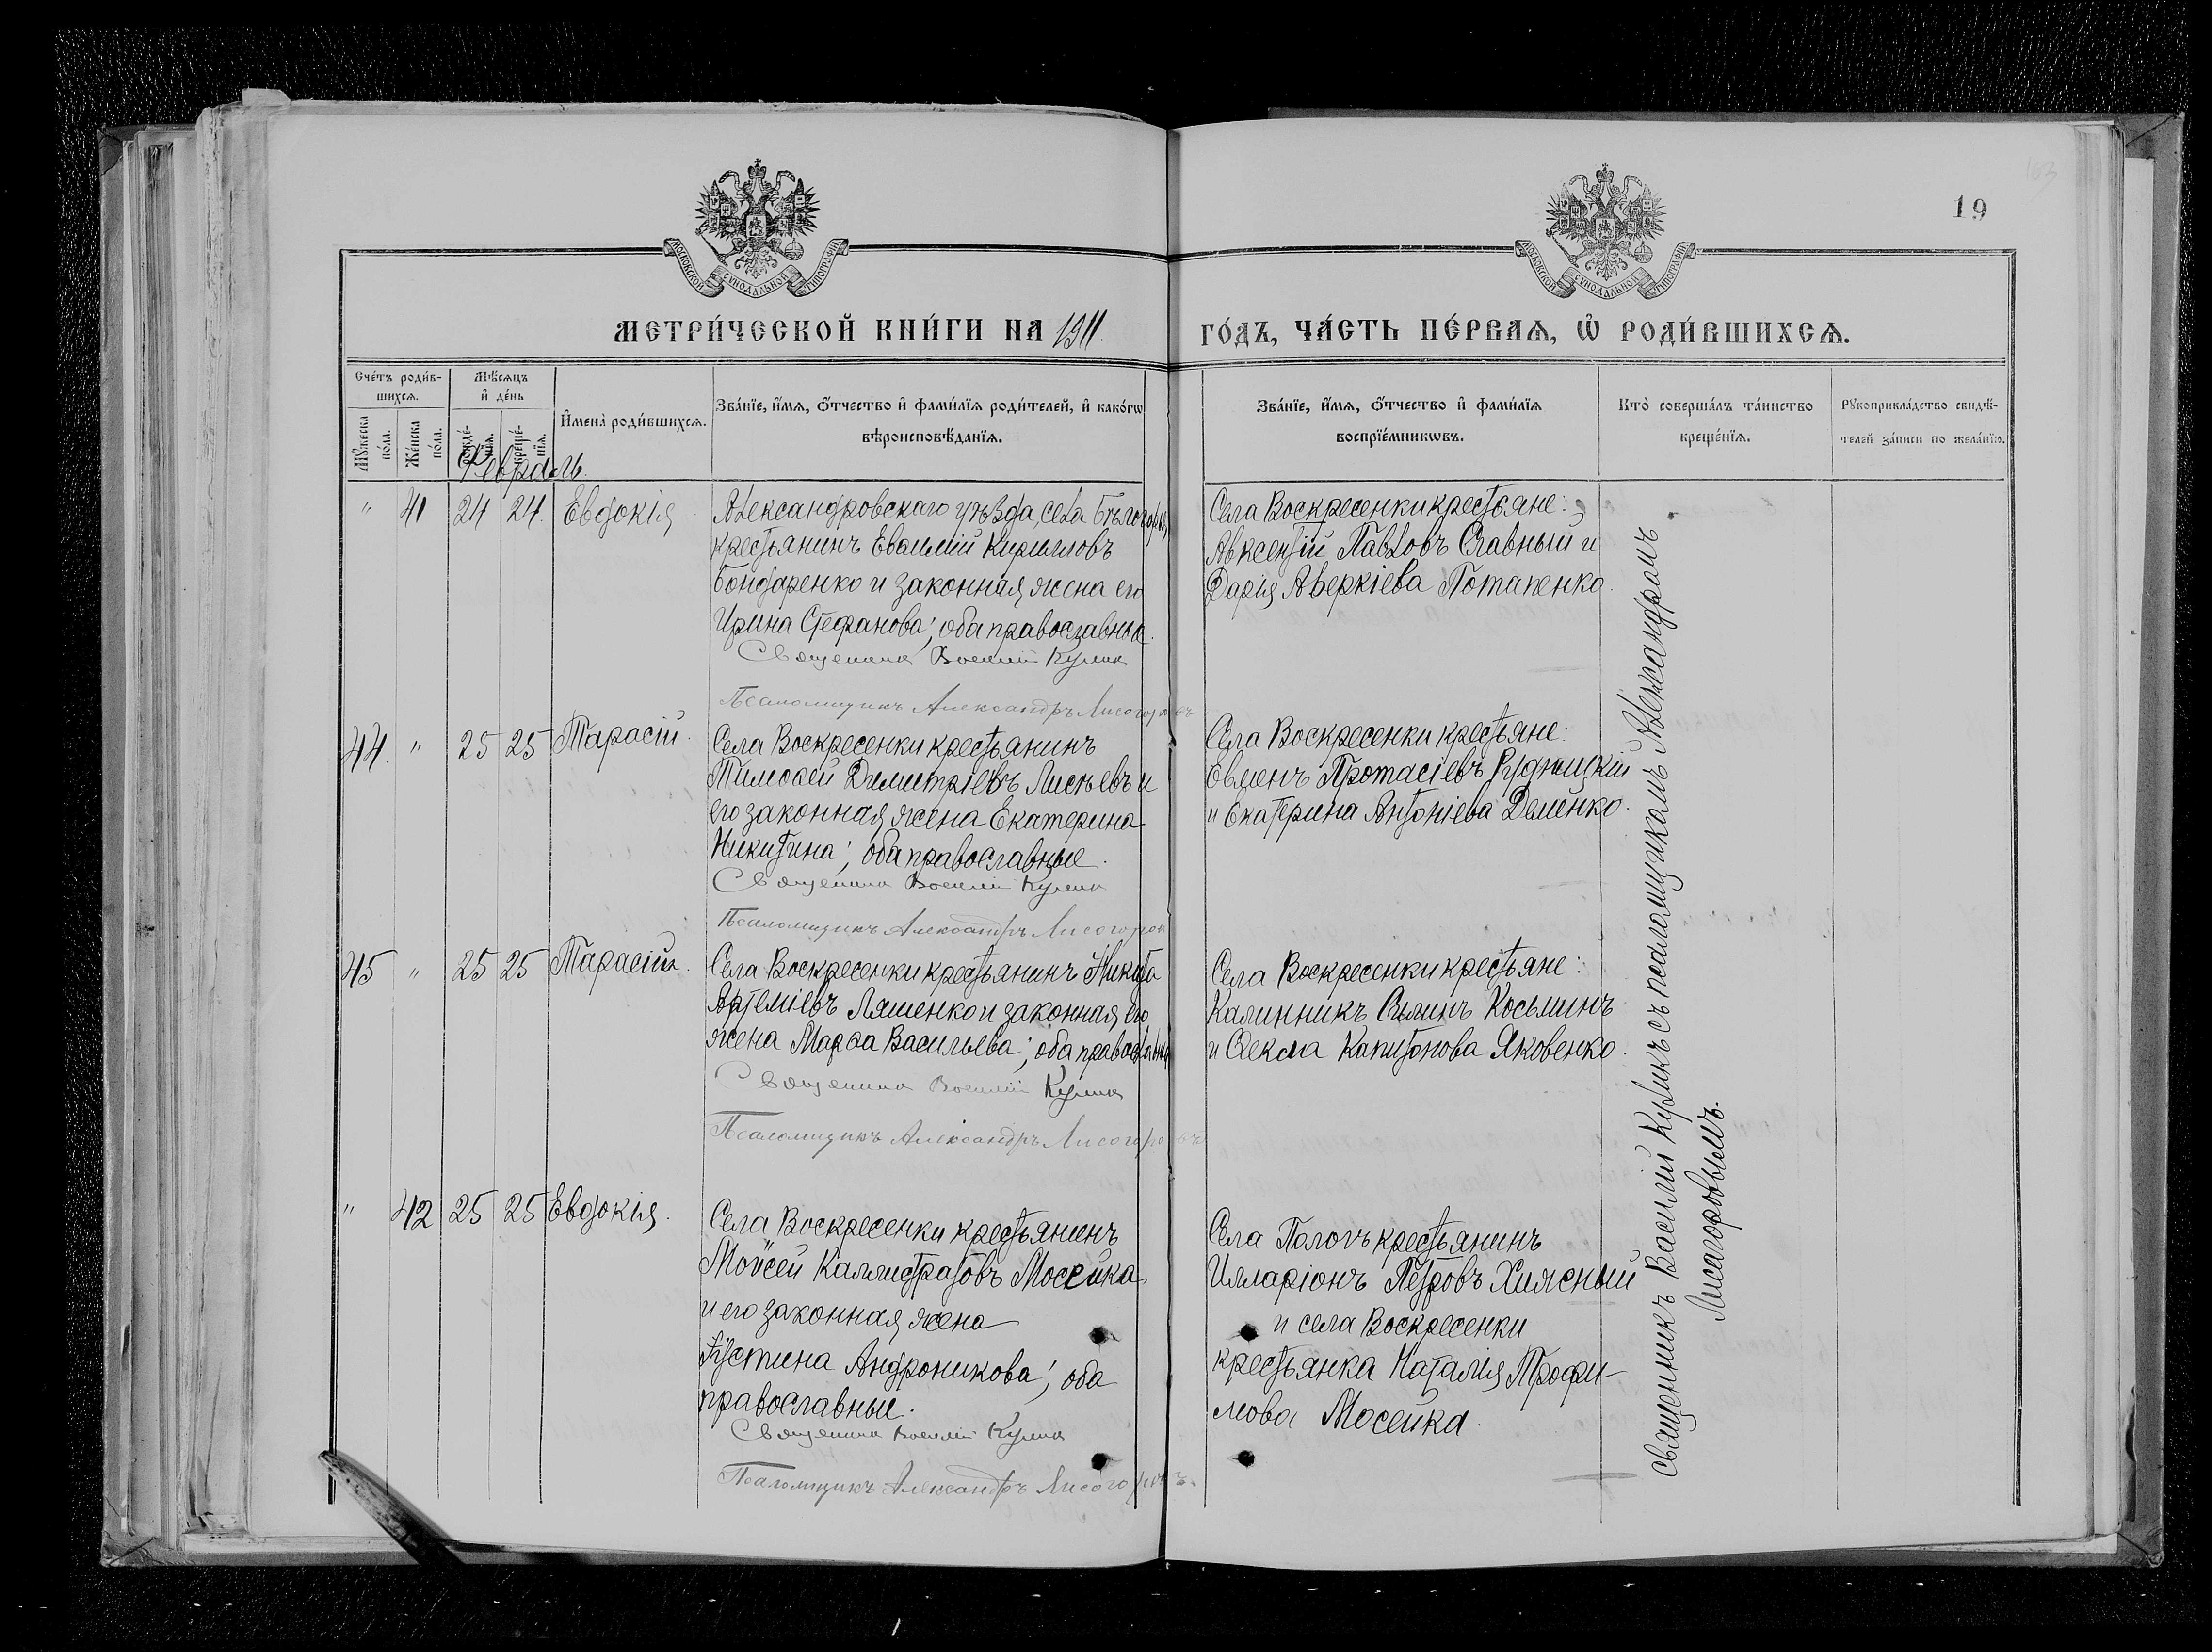 163
19
МОСКОВСКОЙ СѴНОДАЛЬНОЙ ТИПОГРАФІИ
МОСКОВСКОЙ СѴНОДАЛЬНОЙ ТИПОГРАФІИ
МЕТРИ́ЧЕСКОЙ КНИ́ГИ НА 1911.
ГО́ДЪ, ЧА́СТЬ ПЕ́РВАѦ, Ѡ҆ РОДИ́ВШИХСѦ.
Сче́тъ роди́в-
шихсѧ.
Мѣ́сѧцъ
и҆ де́нь
И҆мена̀ роди́вшихсѧ.
Зва́нїе, и҆́мѧ, ѻ҆́тчество и҆ фами́лїѧ роди́телей, и҆ како́гѡ
вѣроисповѣ́данїѧ.
Зва́нїе, и҆́мѧ, ѻ҆́тчество и҆ фами́лїѧ
воспрїе́мникѡвъ.
Кто̀ соверша́лъ та́инство
креще́нїѧ.
Рꙋкоприкла́дство свидѣ́-
телей за́писи по жела́нїю.
Мꙋ́жеска
по́ла.
Же́нска
по́ла.
рожде́-
нїѧ.
креще́-
нїѧ.
Февраль.
" 41 24 24. Евдокія
Александровскаго уѣзда, села Бѣлогорья
крестьянинъ Евѳимій Кирилловъ
Бондаренко и законная жена его
Ирина Стефанова; оба православные.
Священникъ Василій Куликъ
Псаломщикъ Александръ Лисогоровъ
Села Воскресенки крестьяне:
Авксентій Павловъ Славный и
Дарія Аверкіева Потапенко.
44. " 25 25 Тарасій.
Села Воскресенки крестьянинъ
Тимоѳей Димитріевъ Листьевъ и
его законная жена Екатерина
Никитина; оба православные.
Священникъ Василій Куликъ
Псаломщикъ Александръ Лисогоров
Села Воскресенки крестьяне:
Евменъ Протасіевъ Рудницкій
и Екатерина Антоніева Деменко.
45 " 25 25 Тарасій.
Села Воскресенки крестьянинъ Никита
Артеміевъ Ляшенко и законная его
жена Марѳа Васильева; оба православные
Священникъ Василій Куликъ
Псаломщикъ Александръ Лисогоровъ
Села Воскресенки крестьяне:
Калинникъ Косьминъ
и Ѳекла Капитонова Яковенко.
" 42 25 25 Евдокія.
Села Воскресенки крестьянинъ
Моѵсей Каллистратовъ Мосейка
и его законная жена
Іустина Андроникова; оба
православные.
Священникъ Василій Куликъ
Псаломщикъ Александръ Лисогоровъ.
Села Пологъ крестьянинъ
Илларіонъ Петровъ Хижсный
и села Воскресенки
крестьянка Наталія Трофи-
мова Мосейка.
Священникъ Василій Куликъ съ псаломщикомъ Александромъ
Лисогоровымъ.